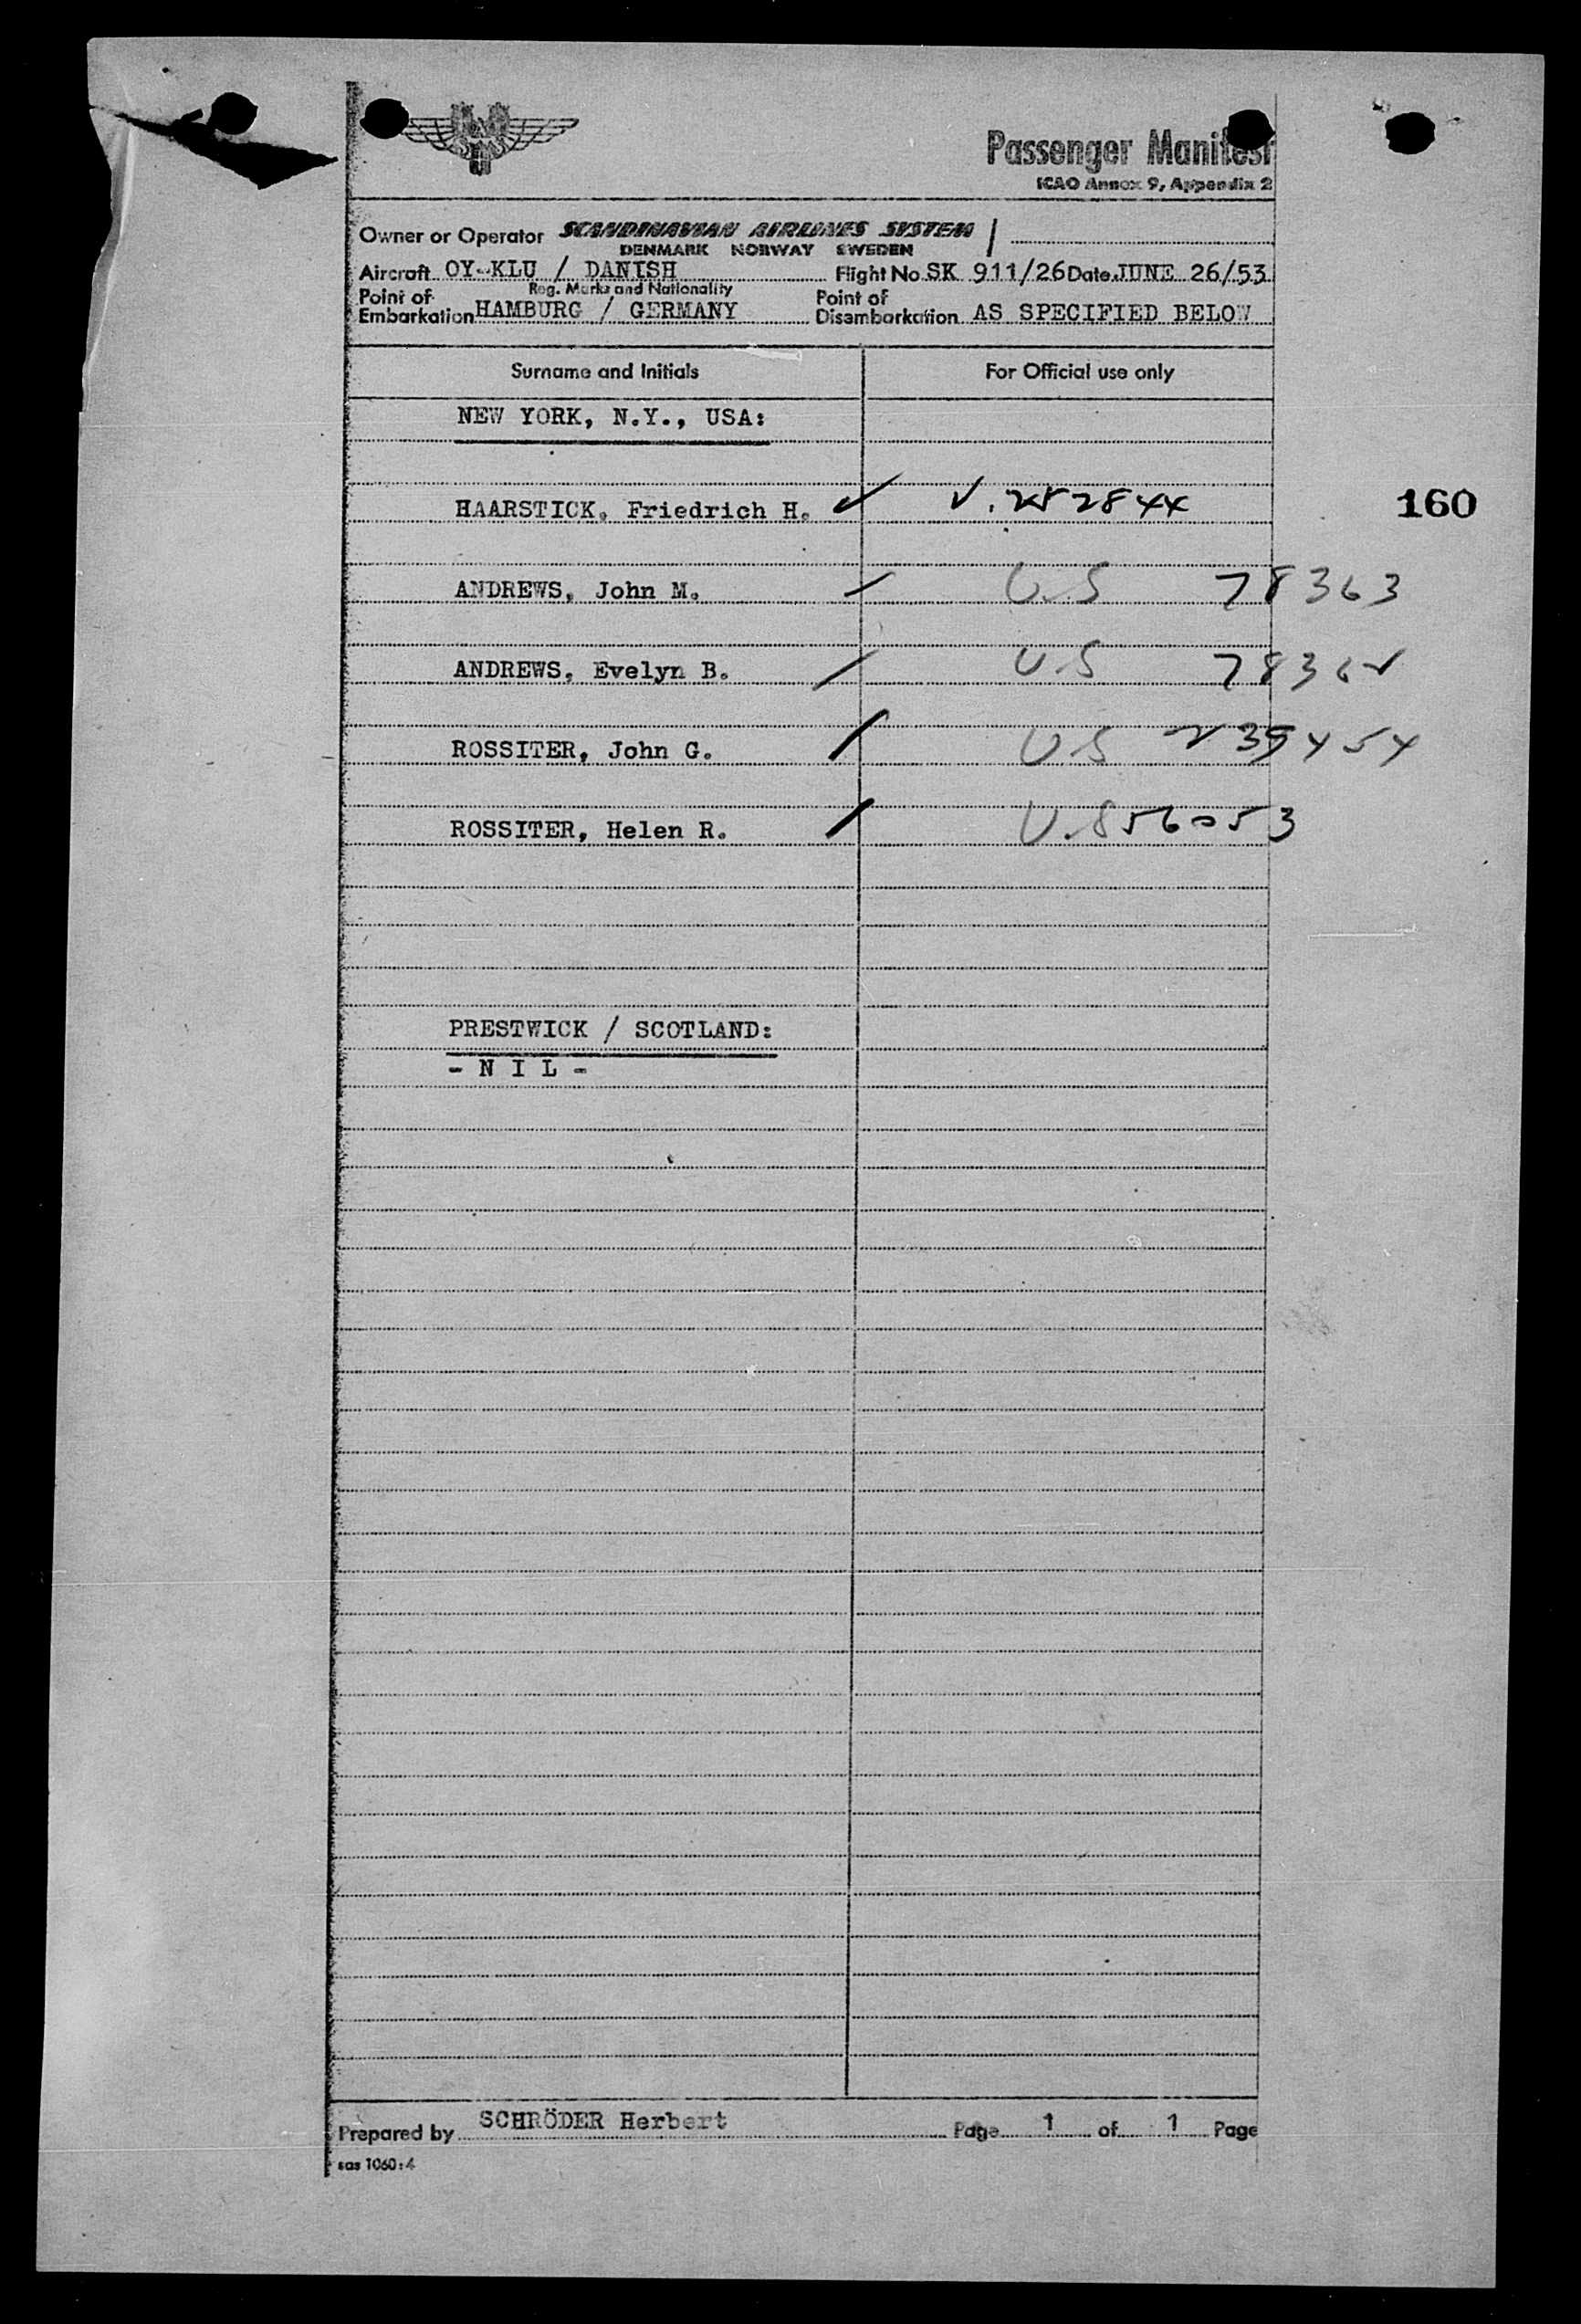 Passenger Manifest
ICAO Annex 9, Appendix 2
Owner or Operator SCANDINAVIAN AIRLINES SYSTEM
DENMARK NORWAY SWEDEN
Aircraft OY-KLU / DANISH Flight No. SK 911/26 Date JUNE 26/53
Reg. Marks and Nationality
Point of Embarkation HAMBURG / GERMANY Point of Disembarkation AS SPECIFIED BELOW
Surname and Initials For Official use only
NEW YORK, N.Y., USA:
HAARSTICK, Friedrich H. V. 252844
160
ANDREWS, John M. U.S 78363
ANDREWS, Evelyn B. U.S
ROSSITER, John G. U.S
ROSSITER, Helen R. U.S 56053
PRESTWICK / SCOTLAND:
- N I L -
Prepared by SCHRÖDER Herbert Page 1 of 1 Page
sas 1060:4